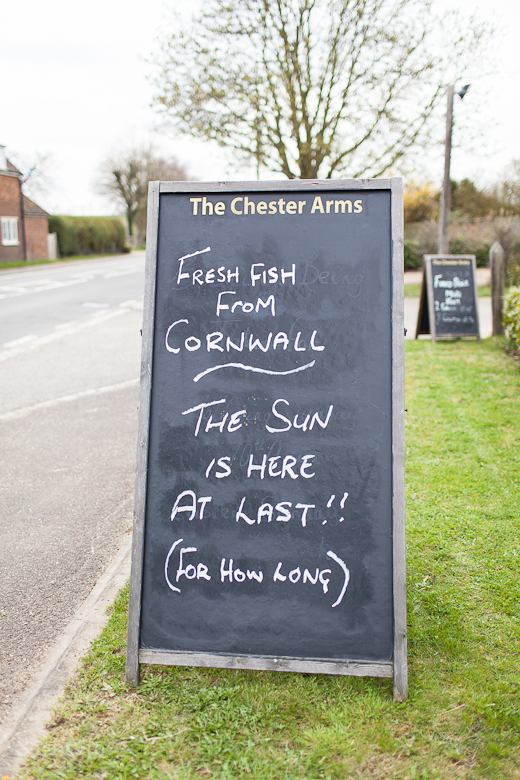 The Chester Arms
FRESH FISH
FROM
CORNWALL
THE SUN
IS HERE
AT LAST!!
(FOR HOW LONG)